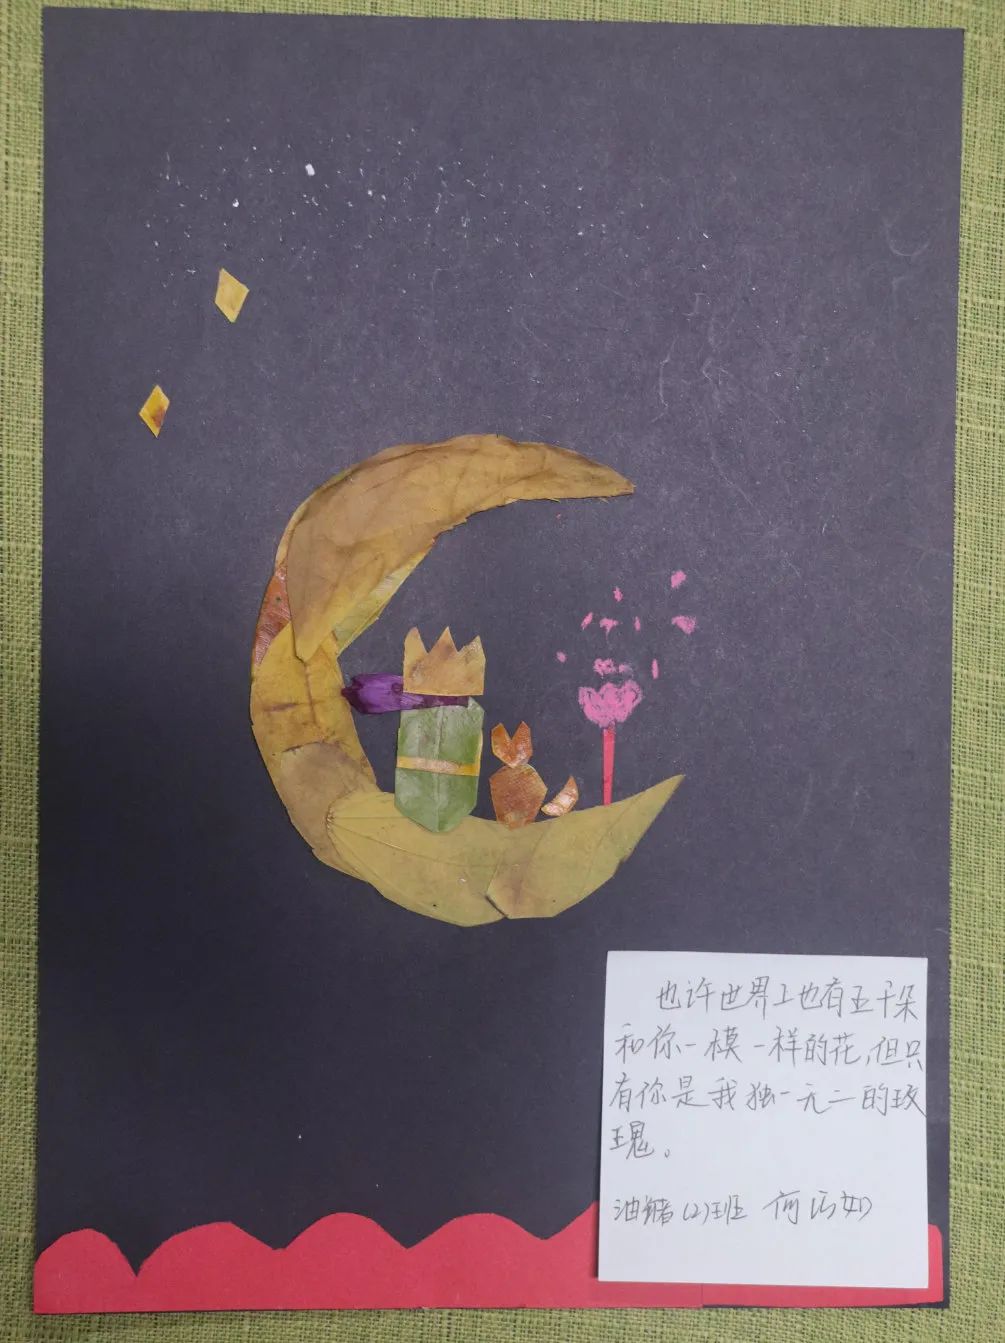 也许世界上也有五千朵
和你一模一样的花,但只
有你是我独一无二的玫
瑰。
油储(2)班 何巧如